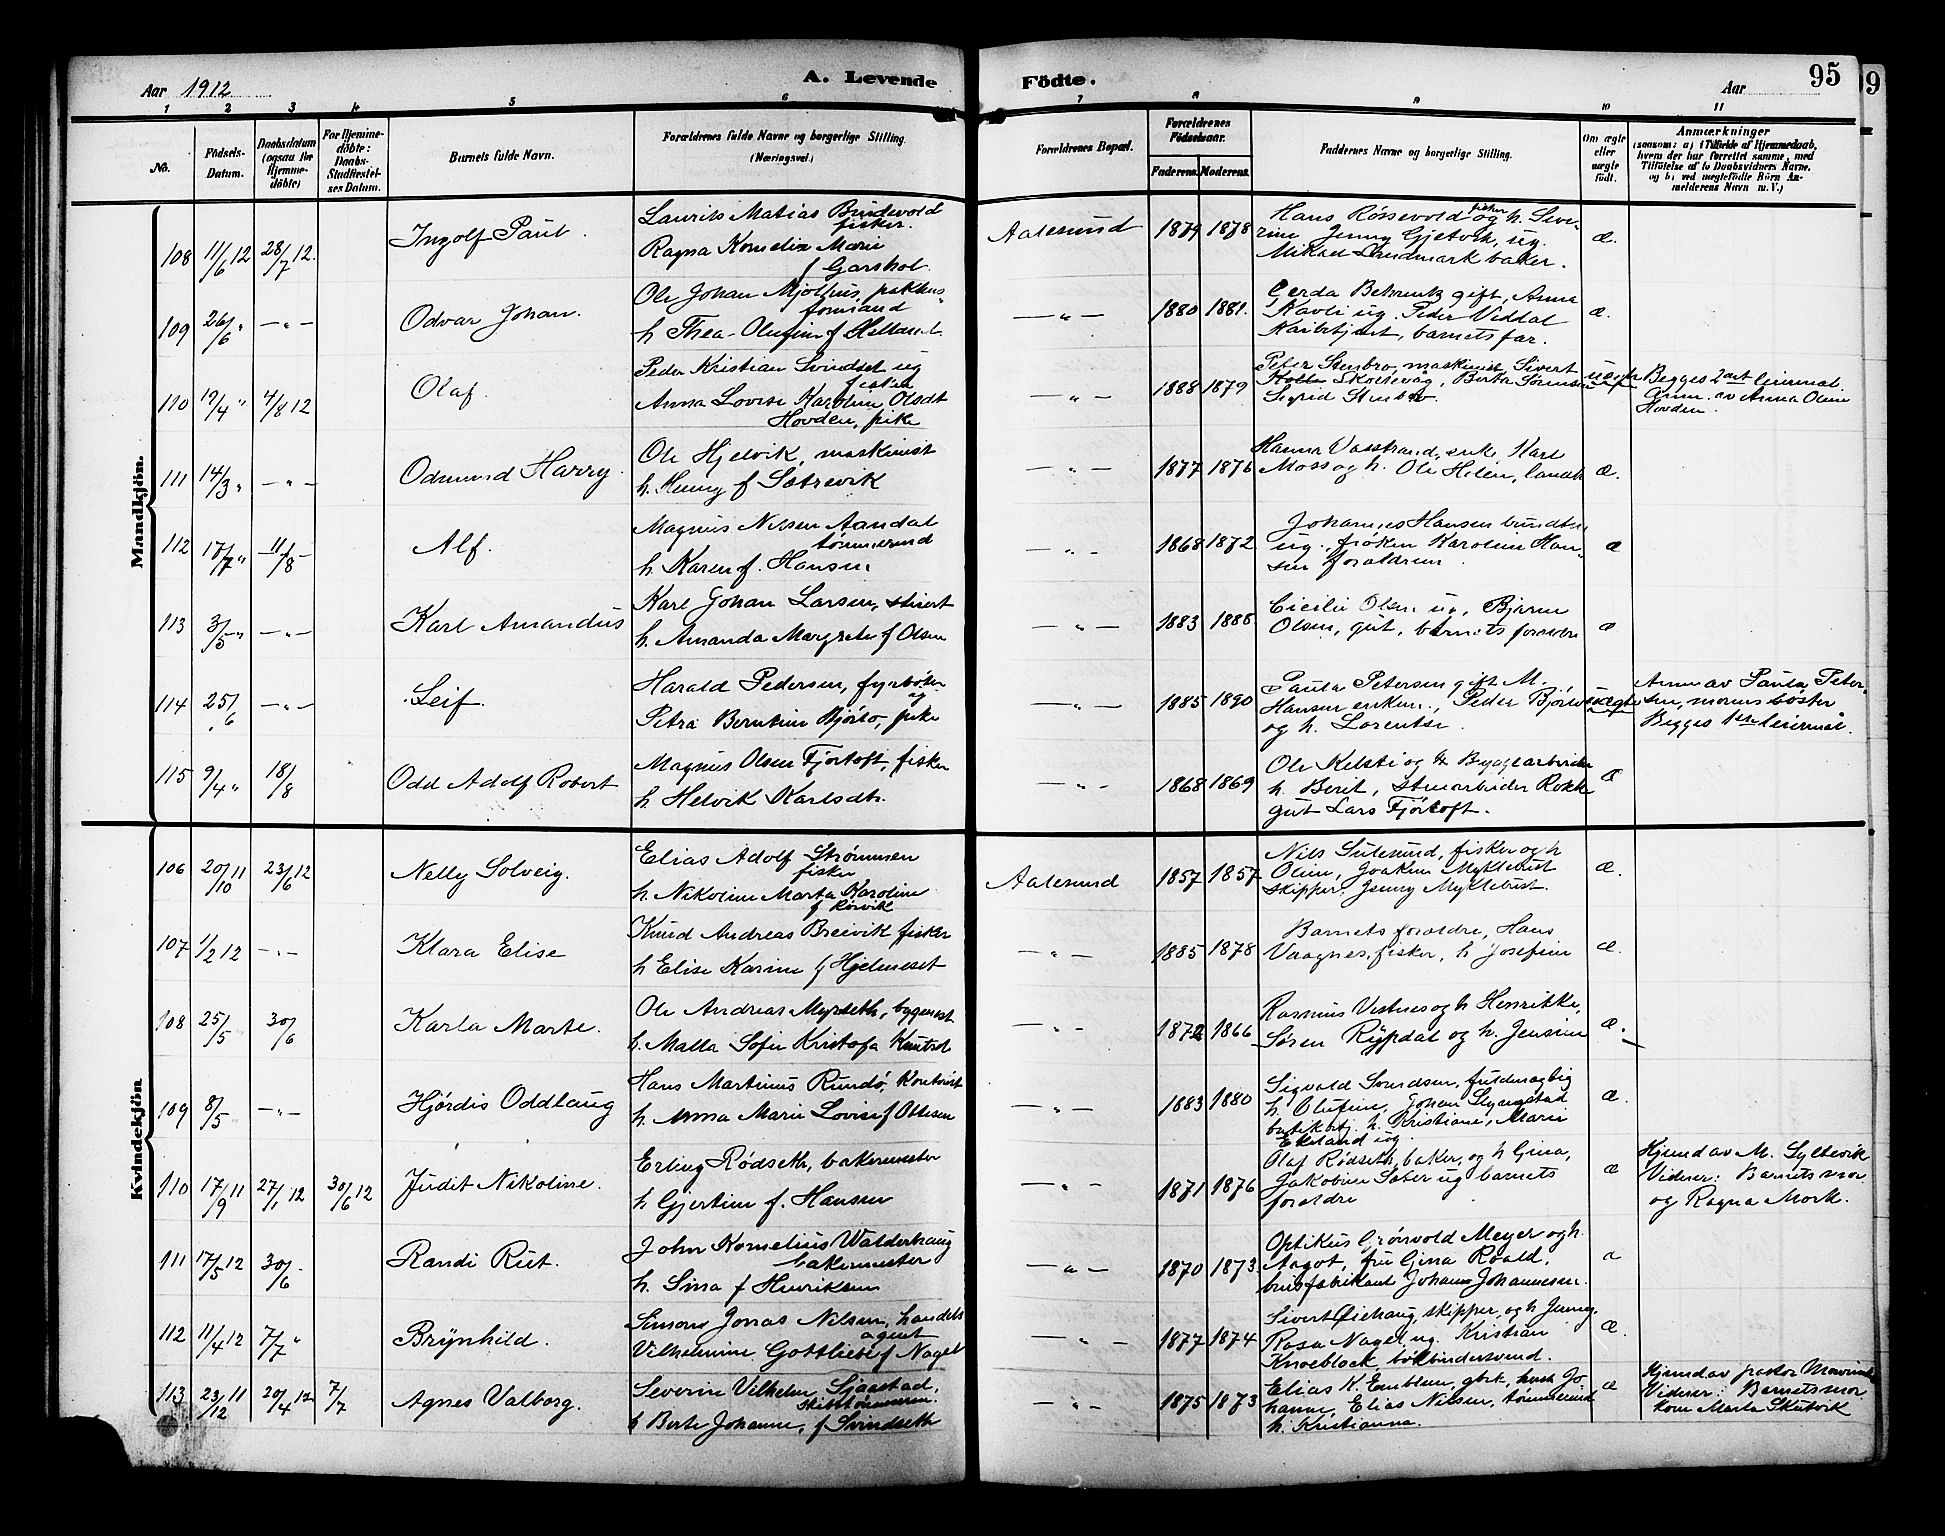 Aar 1912
A. Levende Födte.
Aar
95
9
1 2 3 4 5 6 7 8 9 10 11
No.
Födsels-Datum.
Daabsdatum (ogsaa for Hjemme-döbte)
For Hjemme-döbte: Daabs-Stadfæstel-ses Datum.
Barnets fulde Navn.
Forældrenes fulde Navne og borgerlige Stilling.
(Næringsvei.)
Forældrenes Bopæl.
Forældrenes Födselsaar.
Faderens. Moderens.
Faddernes Navne og borgerlige Stilling.
Om ægte eller uægte födt.
Anmærkninger
(saasom: a) i Tilfælde af Hjemmedaab, hvem der har forrettet samme, med Tilföielse af to Daabsvidners Navne, og b) ved uægtefödte Börn An-melderens Navn m. V.)
Mandkjön.
108 11/6 12 28/7 12. Ingolf Paul. Laurits Matias Bindevold
fisker.
Ragna Kornelia Marie
f Garshol.
Aalesund 1879 1878 Hans Røssevold fisker og h. Seve-
rine Jenny Gjetvik, ug.
Mikael Landmark baker.
æ.
109 26/6 " — " — Odvar Johan. Ole Johan Mjølhus, pakhus-
formand
h Thea Olufine f Helland.
— " — 1880 1881. Gerda Behrentz gift, Anna
Kavli ug. Peder Viddal
barnets far.
æ.
110 19/4 " 4/8 12 Olaf. Peder Kristian Svindset ug
fisker
Anna Lovise Karoline Olsdt
Hovden, pike
— " — 1888 1879 Peter Stenbro, maskinist, Sivert
Skottevåg, Berta Sørensen
Sigrid Stenbro.
uægte
Begges 2det leiermål.
Anm. av Anna Olsen
Hovden.
111 14/3 " — " — Odmund Harry. Ole Hjelvik, maskinist
h. Jenny f Sætrevik
— " — 1877 1876 Hanna Vasstrand, enke, Karl
Moss og h. Ole Helen,
æ.
112 17/7 " 11/8 — Alf. Magnus Nilsen Aandal
tømmermand
h. Karen f. Hansen
— " — 1868 1872 Johannes Hansen
ug., frøken Karoline Han-
sen foreldrene.
æ
113 3/5 " — " — Karl Amandus Karl Johan Larsen,
h. Amanda Margrete f Olsen
— " — 1883 1888 Cicilie Olsen ug, Bjarne
Olsen, gut, barnets foreldre
æ
114 25/6 " — " — Leif. Harald Pedersen, fyrbøter
ug
Petra Berntine Bjørlo, pike
— " — 1885 1890 Paula Petersen gift, M.
Hansen enkem., Peder Bjørlo
og h. Lorentse.
uægte
Anm av Paula Peter-
sen, morens søster
Begges 1ste leiermål.
115 9/4 " 18/8 Odd Adolf Robert Magnus Olsen Fjørtoft, fisker
h Helvik Karlsdtr.
— " — 1868 1869 Ole Kelsti og
h. Berit, stenarbeider Rokke
gut Lars Fjørtoft.
æ
Kvindekjön.
106 20/10 11 23/6 12 Nelly Solveig. Elias Adolf Strømmen
fisker
h. Nikoline Marta Karoline
f Rørvik
Aalesund 1857 1857 Nils Sulesund, fisker og h
Oline, Joakim Myklebust
skipper, Jenny Myklebust.
æ.
107 1/2 12 — " — Klara Elise Knud Andreas Breivik fisker
h Elise Karine f Hjelmeset
— " — 1885 1878 Barnets foreldre, Hans
Vaagnes, fisker, h Josefine
æ.
108 25/5 " 30/6 Karla Marte. Ole Andreas Myrseth, bygmest
h. Malla Sofie Kristofa Knutsdt
— " — 1872 1866 Rasmus Vestnes og h Henrikke,
Søren Rypdal og h. Jensine
æ.
109 8/5 — " — Hjördis Oddlaug Hans Martinus Rundö, Kontorist
h. Anna Marie Lovise f Olsen
— " — 1883 1880 Sigvald Svendsen, fuldmægtig
h. Olufine, Johan Slyngstad
butikbtj. h. Kristiane, Marie
Ekeland ug.
æ.
110 17/9 11 27/1 12 30/6 12 Judit Nikoline. Erling Rødseth, bakermester
h Gjertine f. Hansen
— " — 1871 1876 Olaf Rødseth, baker, og h Gina,
Jakobine Sæter ug barnets
foreldre
æ
Hjemd av M. Syltevik
Vidner: Barnets mor
og Ragna Mork.
111 17/5 12 30/6 - Randi Rut. John Kornelius Walderhaug
bakermester
h. Sina f Henriksen
— " — 1870 1873 Optikus Grønvold Meyer og h.
Aagot, fru Gina Roald,
brusfabrikant Johann Johannesen.
æ
112 11/4 12 7/7 " Brynhild. Simon Jonas Nilsen, handels
agent
Vilhelmine Gottliebe f Nagel
— " — 1877 1874 Sivert Øiehaug, skipper, og h Jenny.
Rosa Nagel, ug. Kristian
Knoeblock, bokbindersvend.
æ.
113 23/12 11 20/4 12 7/7 Agnes Valborg. Severin Vilhelm Sjaastad,
skibstømmerm.
h Berte Johanne, f Svindseth
— " — 1875 1873 Elias K. Emblem, gbr., h Jo
hanne, Elias Nilsen, tømmermand
h. Kristianna.
æ
Hjemd av pastor
Vidner: Barnets mor
kone Marta Skutvik